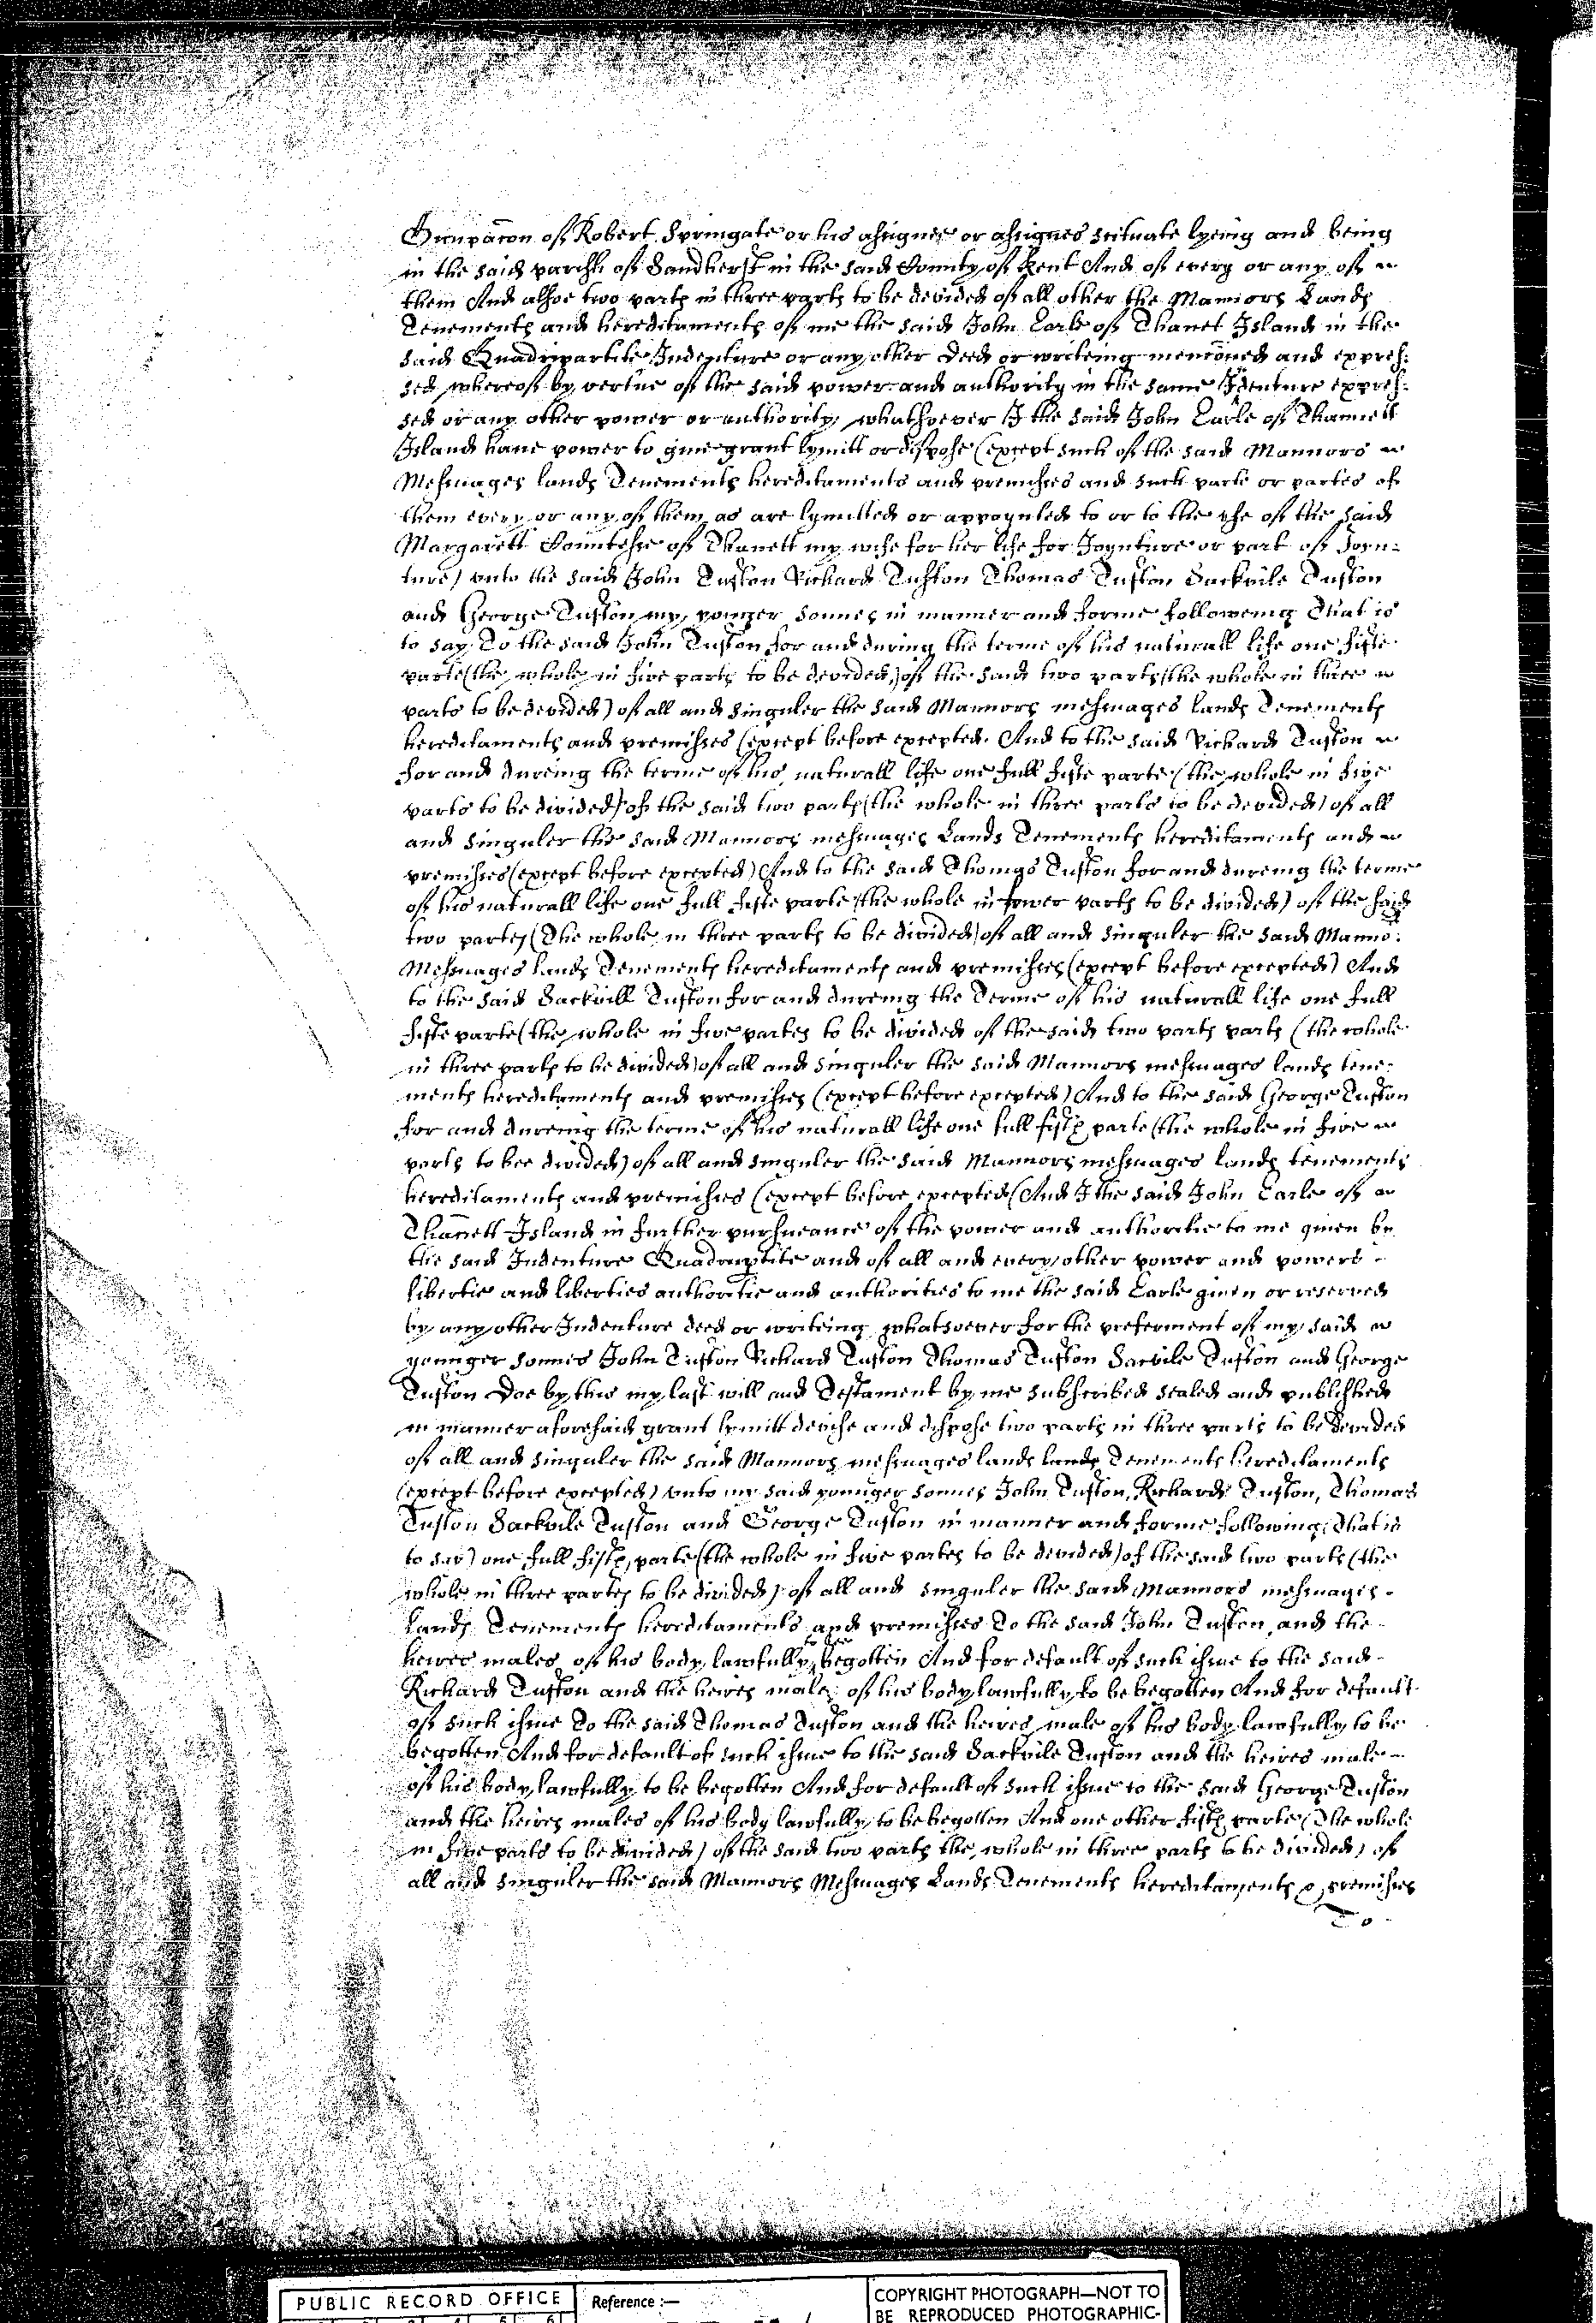 Occupacon of Robert Springate or his assignee or assignes scituate lyeing and being
in the said parish of Sandherst in the said County of Kent And of every or any of
them And alsoe two parts in three parts to be devided of all other the Mannors Lands
Tenements and hereditaments of me the said John Earle of Thanet Island in the
said Quadripartite Indenture or any other deed or writeing mencōned and expres:
sed whereof by vertue of the said power and authority in the same Identure expres:
sed or any other power or authority whatsoever I the said John Earle of Thannett
Island haue power to giue grant lymitt or dispose (except such of the said Mannors
Messuages lands Tenements hereditaments and premisses and such parte or partes of
them every or any of them as are lymitted or appoynted to or to the vse of the said
Margarett Countesse of Thanett my wife for her life for Joynture or part of Joyn:
ture) vnto the said John Tufton Richard Tufton Thomas Tufton Sackvile Tufton
and George Tufton my younger sonnes in manner and forme followeing That is
to say To the said John Tufton for and during the terme of his naturall life one fifte
parte (the whole in five parts to be devided) of the said two parts (the whole in three
parts to be devided) of all and singuler the said Mannors messuages lands Tenements
hereditaments and premisses (except before excepted. And to the said Richard Tufton
for and dureing the terme of his naturall life one full fifte parte (the whole in five
parts to be divided) of the said two parts (the whole in three parts to be devided) of all
and singuler the said Mannors messuages Lands Tenements hereditaments and
premisses (except before excepted) And to the said Thomas Tufton for and dureing the terme
of his naturall life one full fifte parte (the whole in fower parts to be divided) of the said
two partes (The whole in three parts to be divided) of all and singuler the said Manno:
Messuages lands Tenements hereditaments and premisses (except before excepted) And
to the said Sackvill Tufton for and dureing the Terme of his naturall life one full
fifte parte (the whole in five partes to be divided of the said two parts parts (the whole
in three parts to be divided) of all and singuler the said Mannors messuages lands tene:
ments hereditaments and premisses (except before excepted) And to the said George Tufton
for and dureing the terme of his naturall life one full fifth parte (the whole in five
parts to bee divided) of all and singuler the said Mannors messuages lands tenements
hereditaments and premisses (except before excepted (And I the said John Earle of
Thanett Island in further pursueance of the power and authoritie to me given by
the said Indenture Quadruptite and of all and every other power and powers
libertie and liberties authoritie and authorities to me the said Earle given or reserved
by any other Indenture deed or writeing whatsoever for the preferment of my said
younger sonnes John Tufton Richard Tufton Thomas Tufton Sackvile Tufton and George
Tufton Doe by this my last will and Testament by me subscribed sealed and published
in manner aforesaid grant lymitt devise and dispose two parts in three parts to be devided
of all and singuler the said Mannors messuages lands lands Tenements hereditaments
(except before excepted) vnto my said younger sonnes John Tufton, Richard Tufton, Thomas
Tufton Sackvile Tufton and George Tufton in manner and forme following (That is
to say) one full fifth parte (the whole in five partes to be devided) of the said two parts (the
whole in three partes to be divided) of all and singuler the said Mannors messuages
Lands Tenements hereditaments and premisses To the said John Tufton and the
heires males of his body lawfully to bee begotten And for default of such issue to the said
Richard Tufton and the heires male of his body lawfully to be begotten And for default
of such issue To the said Thomas Tufton and the heires male of his body lawfully to be
begotten And for default of such issue to the said Sackvile Tufton and the heires male
of his body lawfully to be begotten And for default of such issue to the said George Tufton
and the heires males of his body lawfully to be begotten And one other fifth parte (The whole
in five parts to be divided) of the said two parts the whole in three parts to be divided) of
all and singuler the said Mannors Messuages Lands Tenements hereditaments & premisses
To
PUBLIC RECORD OFFICE
Reference :—
COPYRIGHT PHOTOGRAPH—NOT TO
BE REPRODUCED PHOTOGRAPHIC-